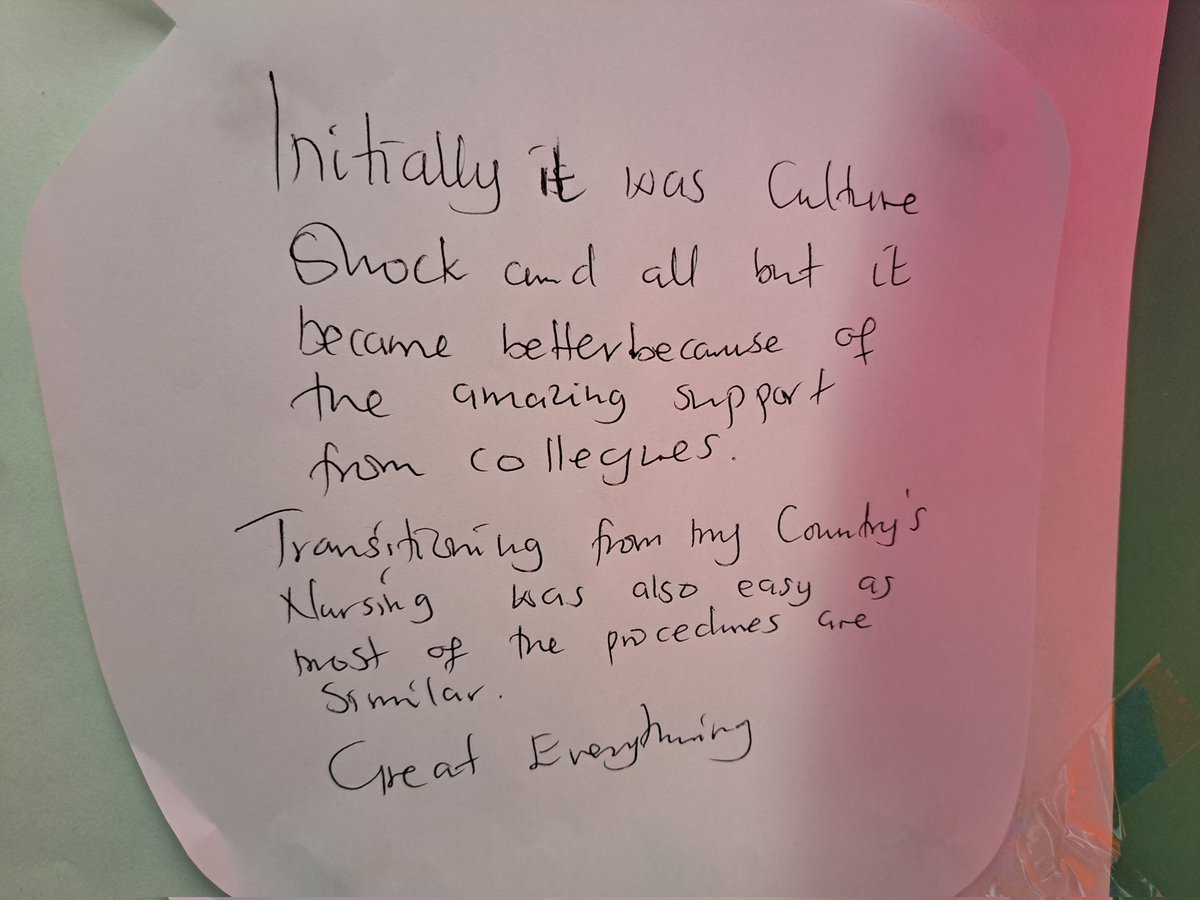 Initially it was Culture
Shock and all but it
became better because of
the amazing support
from collegues.
Transitioning from my Country's
Nursing was also easy as
most of the procedures are
Similar.
Great Everything